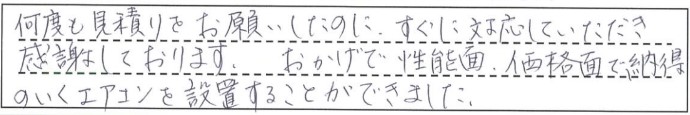 何度も見積りをお願いしたのに、すぐに対応していただき
感謝しております。 おかげで性能面、価格面で納得
のいくエアコンを設置することができました。